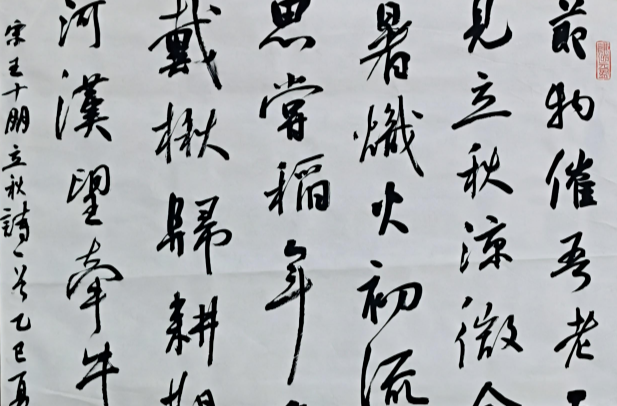 節物催吾老
見立秋涼微
暑熾火初流
思嘗稻年
戴楸歸耕
河漢望牽牛
宋王十朋立秋詩一首乙巳夏